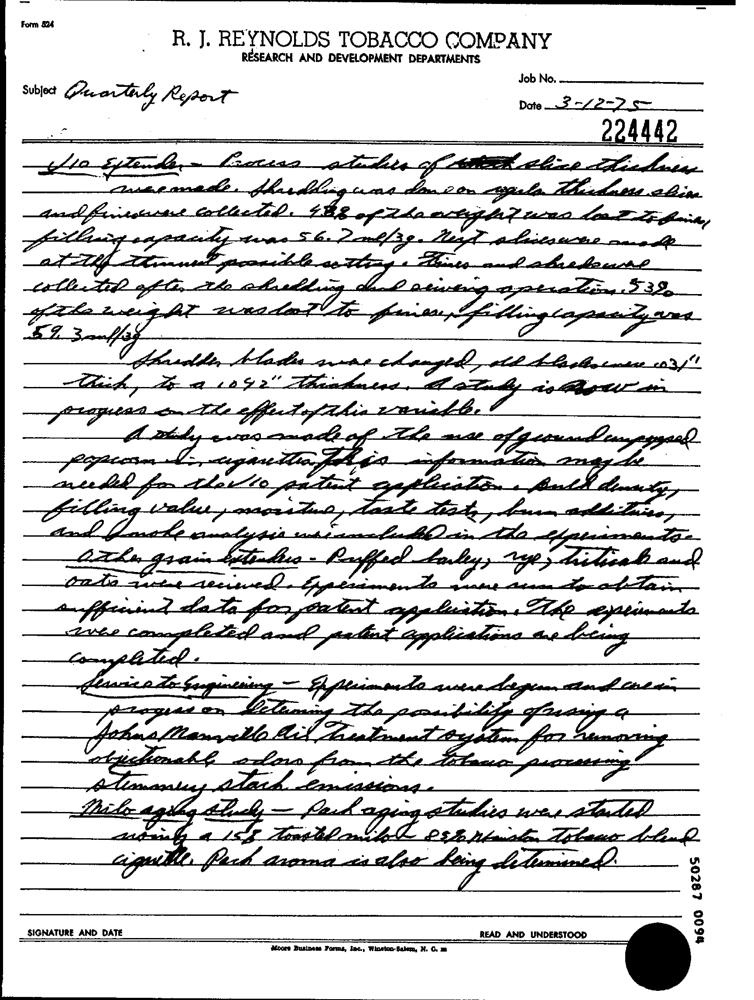 Form 524
R. J. REYNOLDS TOBACCO COMPANY
RESEARCH AND DEVELOPMENT DEPARTMENTS
Subject Quarterly Report
Job No.
Date 3-12-75
224442
V10 Extender - Process studies of slice thickness
were made. Shredding was done on regular thickness slices
and fines were collected. 48% of the weight was lost to fines,
filling capacity was 56.7 ml/3g. Next slices were made
at the thinnest possible setting. Fines and shreds were
collected after the shredding and seiving operation. 53%
of the weight was lost to fines, filling capacity was
59.3 ml/3g
Shredder blades were changed, old blades were .031"
thick, to a .042" thickness. A study is now in
progress on the effect of this variable.
A study was made of the use of ground unpopped
popcorn in cigarettes. This information may be
needed for the V10 patent application. Bulk density,
filling value, moisture, taste tests, burn additives,
and smoke analysis were included in the experiments.
Other grain extenders - Puffed barley, rye, triticale and
oats were received. Experiments were run to obtain
sufficient data for patent application. The experiments
were completed and patent applications are being
completed.
Service to Engineering - Experiments were begun and are in
progress on the possibility of using a
Johns Manville Air Treatment system for removing
objectionable odors from the tobacco processing
stemmery stack emissions.
Milo aging study - Pack aging studies were started
using a 15% toasted milo - 85% Winston tobacco blend
cigarette. Pack aroma is also being determined.
50287 0094
SIGNATURE AND DATE
READ AND UNDERSTOOD
Moore Business Forms, Inc., Winston-Salem, N. C.